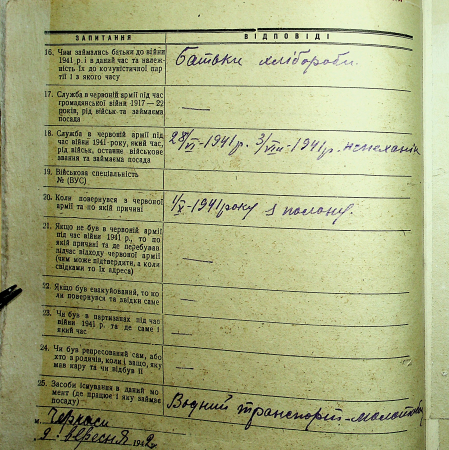 ЗАПИТАННЯ ВІДПОВІДІ
16. Чим займались батьки до війни
1941 р. і в даний час та належ-
ність їх до комуністичної пар-
тії і з якого часу
Батьки хлібороби.
17. Служба в червоній армії під час
громадянської війни 1917 — 22
років, рід військ та займаєма
посада
—
18. Служба в червоній армії під
час війни 1941 року, який час,
рід військ, останнє військове
звання та займаєма посада
28/VI-1941 р. 3/VIII-1941 р.
19. Військова спеціальність
№ (ВУС)
20. Коли повернувся з червоної
армії та по якій причині
1/X-1941 року з полону.
21. Якщо не був в червоній армії
під час війни 1941 р., то по
якій причині та де перебував
підчас відходу червоної армії
(чим може підтвердити, а коли
свідками то їх адреса)
—
22. Якщо був евакуйований, то ко-
ли повернувся та звідки саме
—
23. Чи був в партизанах під час
війни 1941 р. та де саме і
який час
—
24. Чи був репресований сам, або
хто з родичів, коли і защо, яку
мав кару та чи відбув її
—
25. Засоби існування в даний мо-
мент (де працює і яку займає
посаду)
Водний транспорт-
м. Черкаси
9. вересня 1942 р.